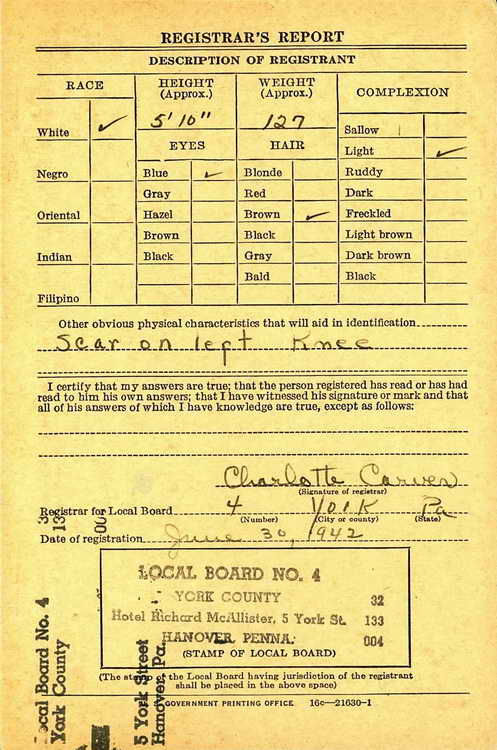 REGISTRAR'S REPORT
DESCRIPTION OF REGISTRANT
RACE
HEIGHT
(Approx.)
WEIGHT
(Approx.)
COMPLEXION
White ✓
5' 10"
127
Sallow
EYES
HAIR
Light ✓
Negro
Blue ✓
Blonde
Ruddy
Gray
Red
Dark
Oriental
Hazel
Brown ✓
Freckled
Brown
Black
Light brown
Indian
Black
Gray
Dark brown
Bald
Black
Filipino
Other obvious physical characteristics that will aid in identification
Scar on left Knee
I certify that my answers are true; that the person registered has read or has had
read to him his own answers; that I have witnessed his signature or mark and that
all of his answers of which I have knowledge are true, except as follows:
Charlotte Carver
(Signature of registrar)
Registrar for Local Board 4 York Pa
(Number) (City or county) (State)
Date of registration June 30, 1942
LOCAL BOARD NO. 4
YORK COUNTY 32
Hotel Richard McAllister, 5 York St. 133
HANOVER PENNA. 004
(STAMP OF LOCAL BOARD)
(The of the Local Board having jurisdiction of the registrant
shall be placed in the above space)
GOVERNMENT PRINTING OFFICE 16c—21630-1
Local Board No. 4 32
York County 133
004
5 York Street
Hanover, Pa.